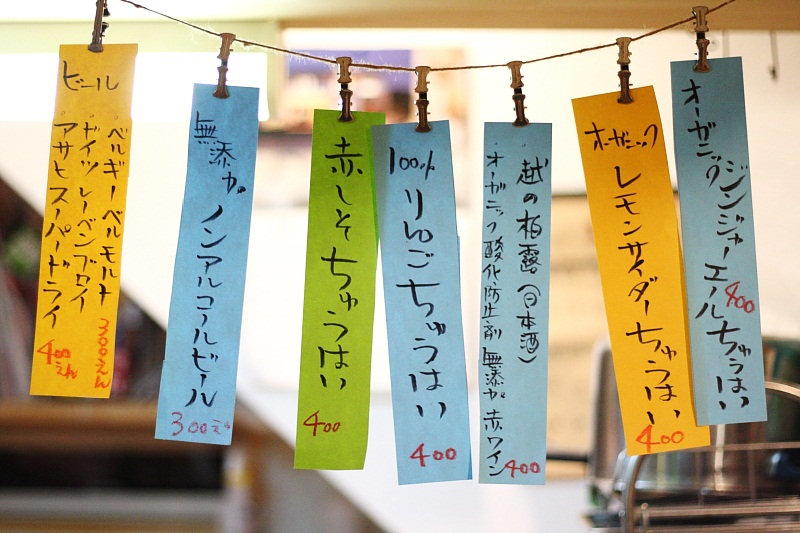 ビール
ベルギーベルモルト 300えん
・ドイツ レーベンブロイ
アサヒスーパードライ 400えん
無添加
ノンアルコールビール
300えん
赤しそちゅうはい
400
100%
りんごちゅうはい
400
越の柏露(日本酒)
オーガニック酸化防止剤無添加赤ワイン
400
オーガニック
レモンサイダーちゅうはい
400
オーガニック
ジンジャーエールちゅうはい
400